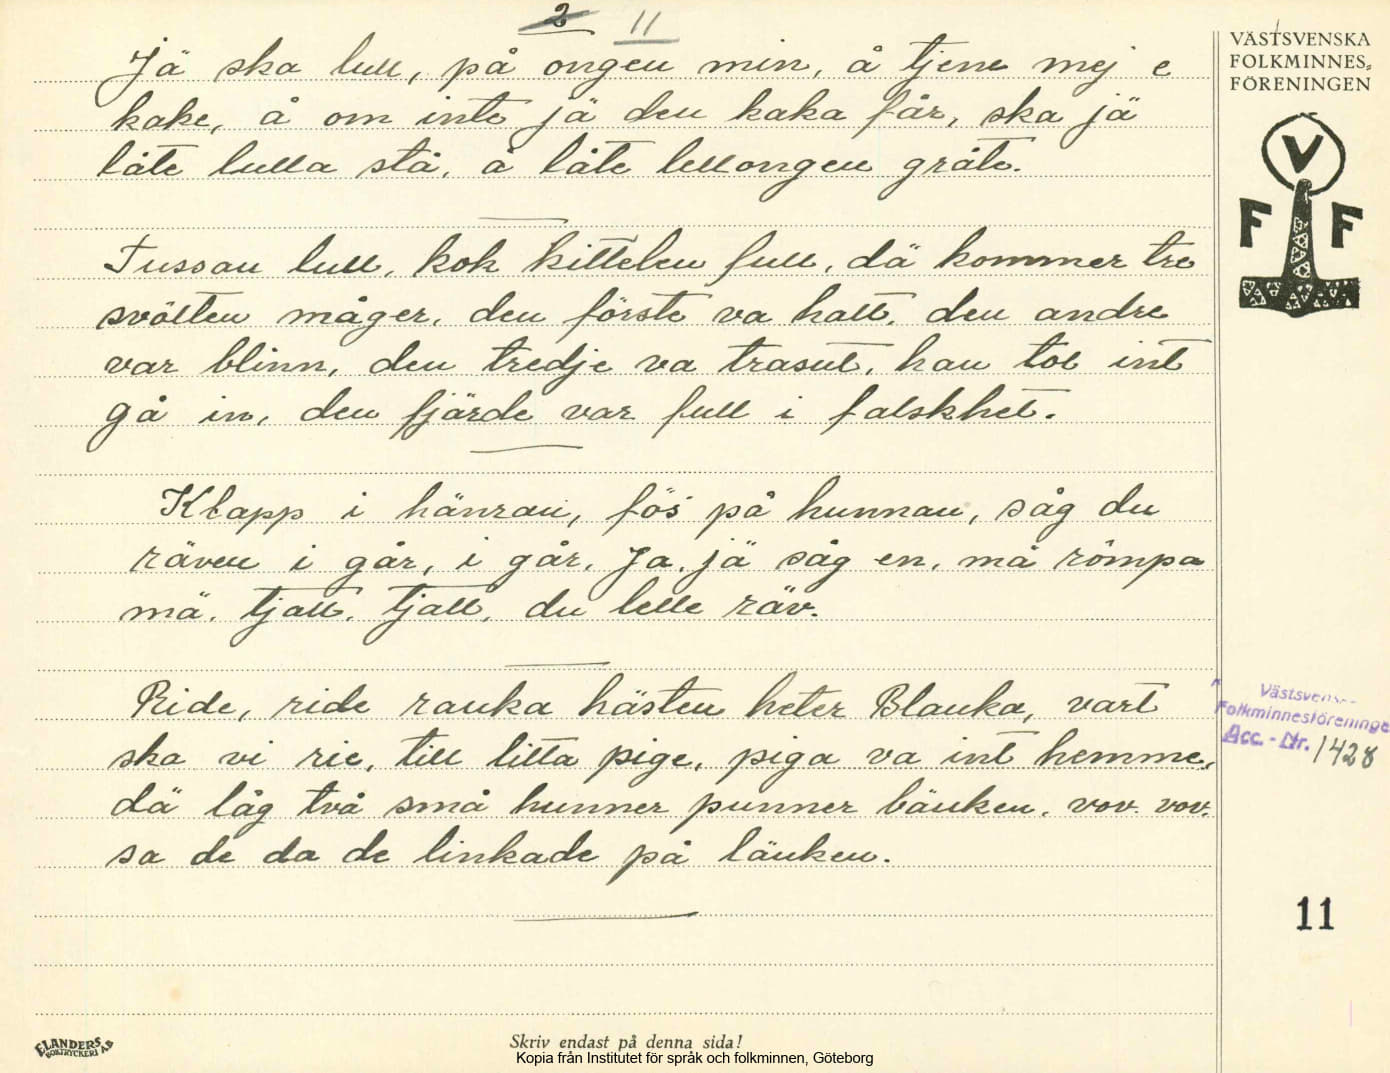 2 11
VÄSTSVENSKA
FOLKMINNES-
FÖRENINGEN
V
F F
Jä ska lull, på ongen min, å tjene mej e
kake, å om inte jä den kaka får, ska jä
låte lulla stå, å låte lellongen gråte.
Tussan lull, kok kittelen full, dä kommer tre
svölten måger, den förste va halt, den andre
var blinn, den tredje va trasut, han tol int
gå in, den fjärde var full i falskhet.
Klapp i hänran, fös på hunnan, såg du
räven i går, i går, Ja, jä såg en, må rômpa
mä. tjall, tjall, du lelle räv.
Ride, ride ranka hästen heter Blanka, vart
ska vi rie, till litta pige, piga va int hemme,
dä låg två små hunner punner bänken, vov. vov.
sa de da de linkade på länken.
Västsvenska
Folkminnesföreningen
Acc.-Nr. 1428
11
ELANDERS
BOKTRYCKERI AB
Skriv endast på denna sida!
Kopia från Institutet för språk och folkminnen, Göteborg